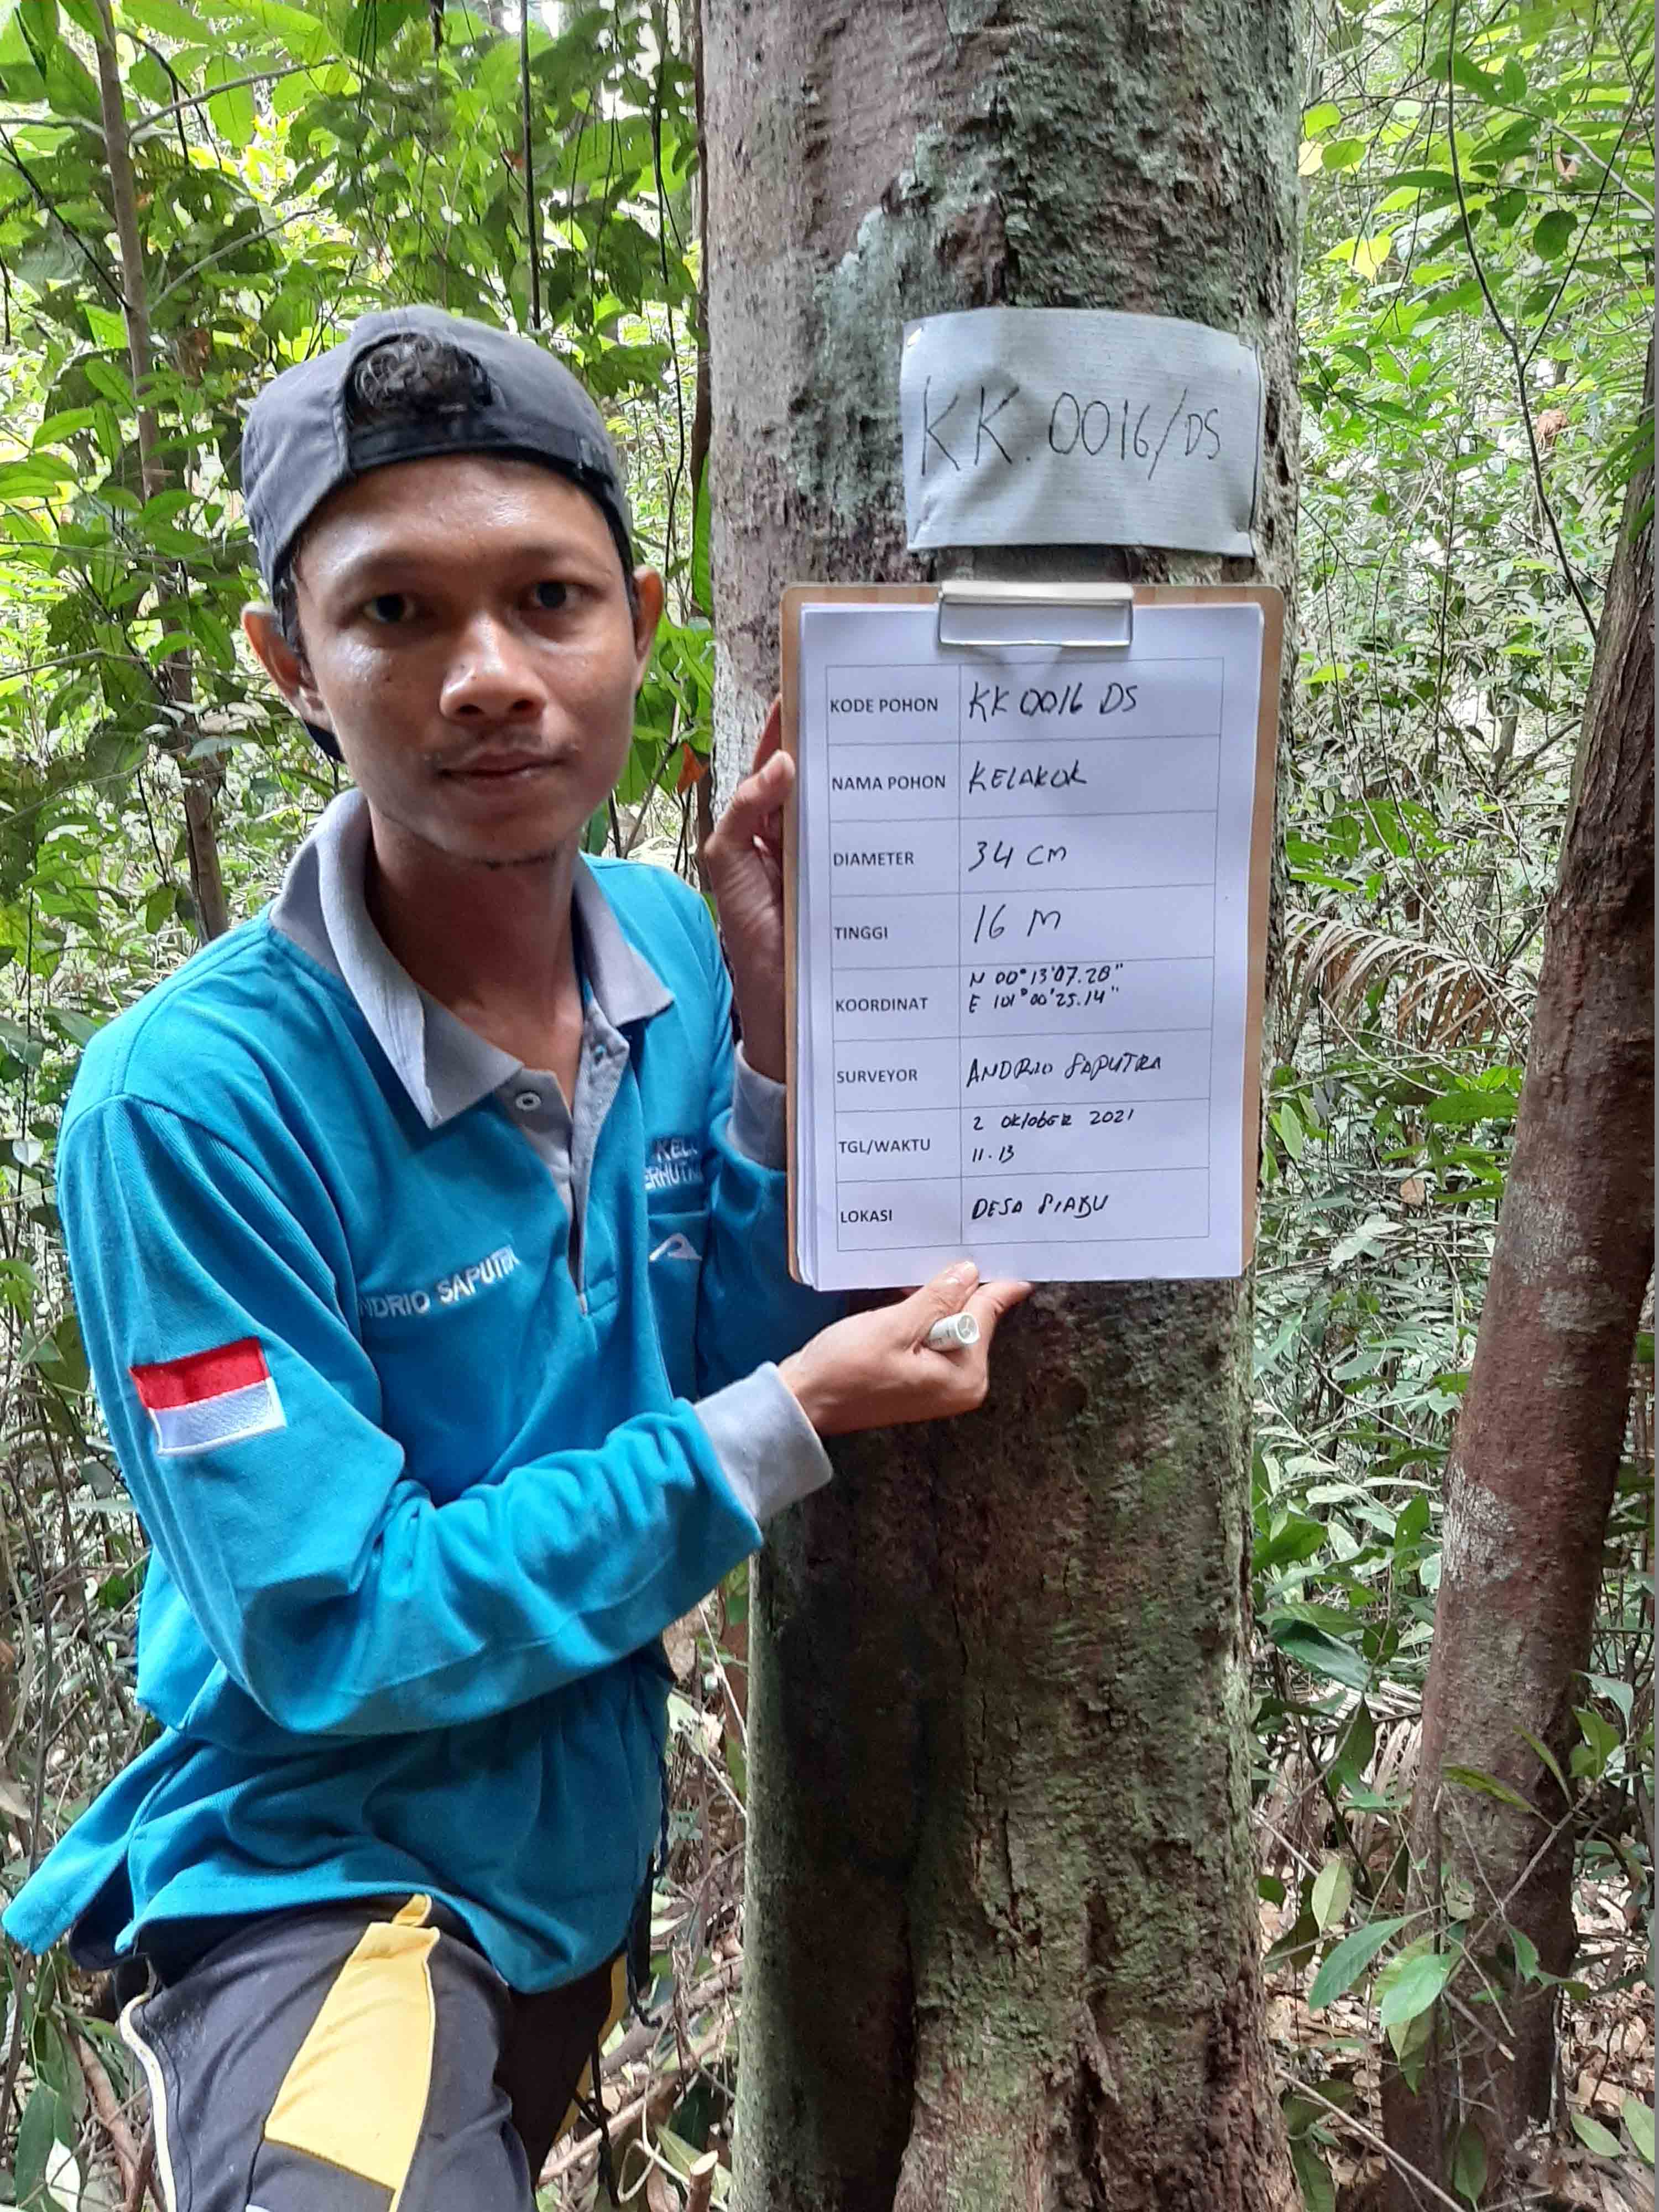 KK.0016/DS
KODE POHON KK 0016 DS
NAMA POHON KELAKOK
DIAMETER 34 CM
TINGGI 16 M
KOORDINAT N 00°13'07.28"
E 101°00'25.14"
SURVEYOR ANDRIO SAPUTRA
TGL/WAKTU 2 OKTOBER 2021
11.13
LOKASI DESA SIABU
KEL
ERHUTA
NDRIO SAPUTRA